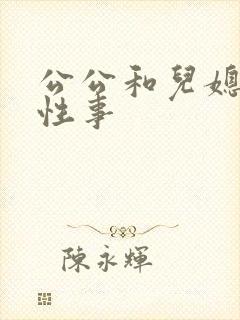 公公和兒媳
性事
陳永輝